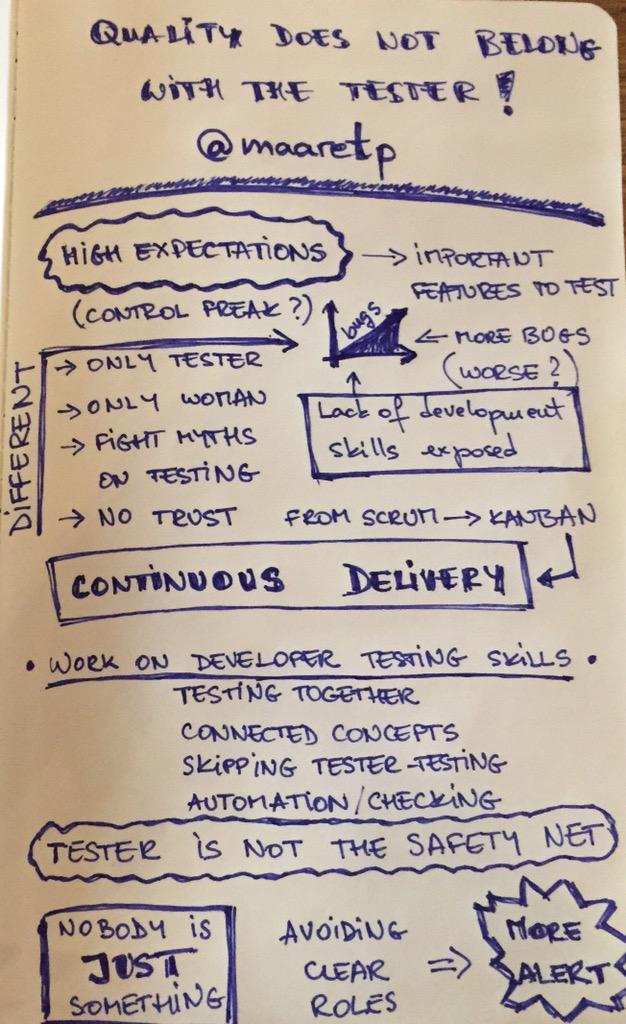 QUALITY DOES NOT BELONG
WITH THE TESTER!
@maaretp
HIGH EXPECTATIONS → IMPORTANT
FEATURES TO TEST
(CONTROL FREAK?)
bugs
← MORE BUGS
(WORSE?)
DIFFERENT
→ ONLY TESTER
→ ONLY WOMAN
→ FIGHT MYTHS
ON TESTING
→ NO TRUST
Lack of development
skills exposed
FROM SCRUM → KANBAN
CONTINUOUS DELIVERY
• WORK ON DEVELOPER TESTING SKILLS •
TESTING TOGETHER
CONNECTED CONCEPTS
SKIPPING TESTER-TESTING
AUTOMATION/CHECKING
TESTER IS NOT THE SAFETY NET
NOBODY IS
JUST
SOMETHING
AVOIDING
CLEAR
ROLES
⇒ MORE
ALERT